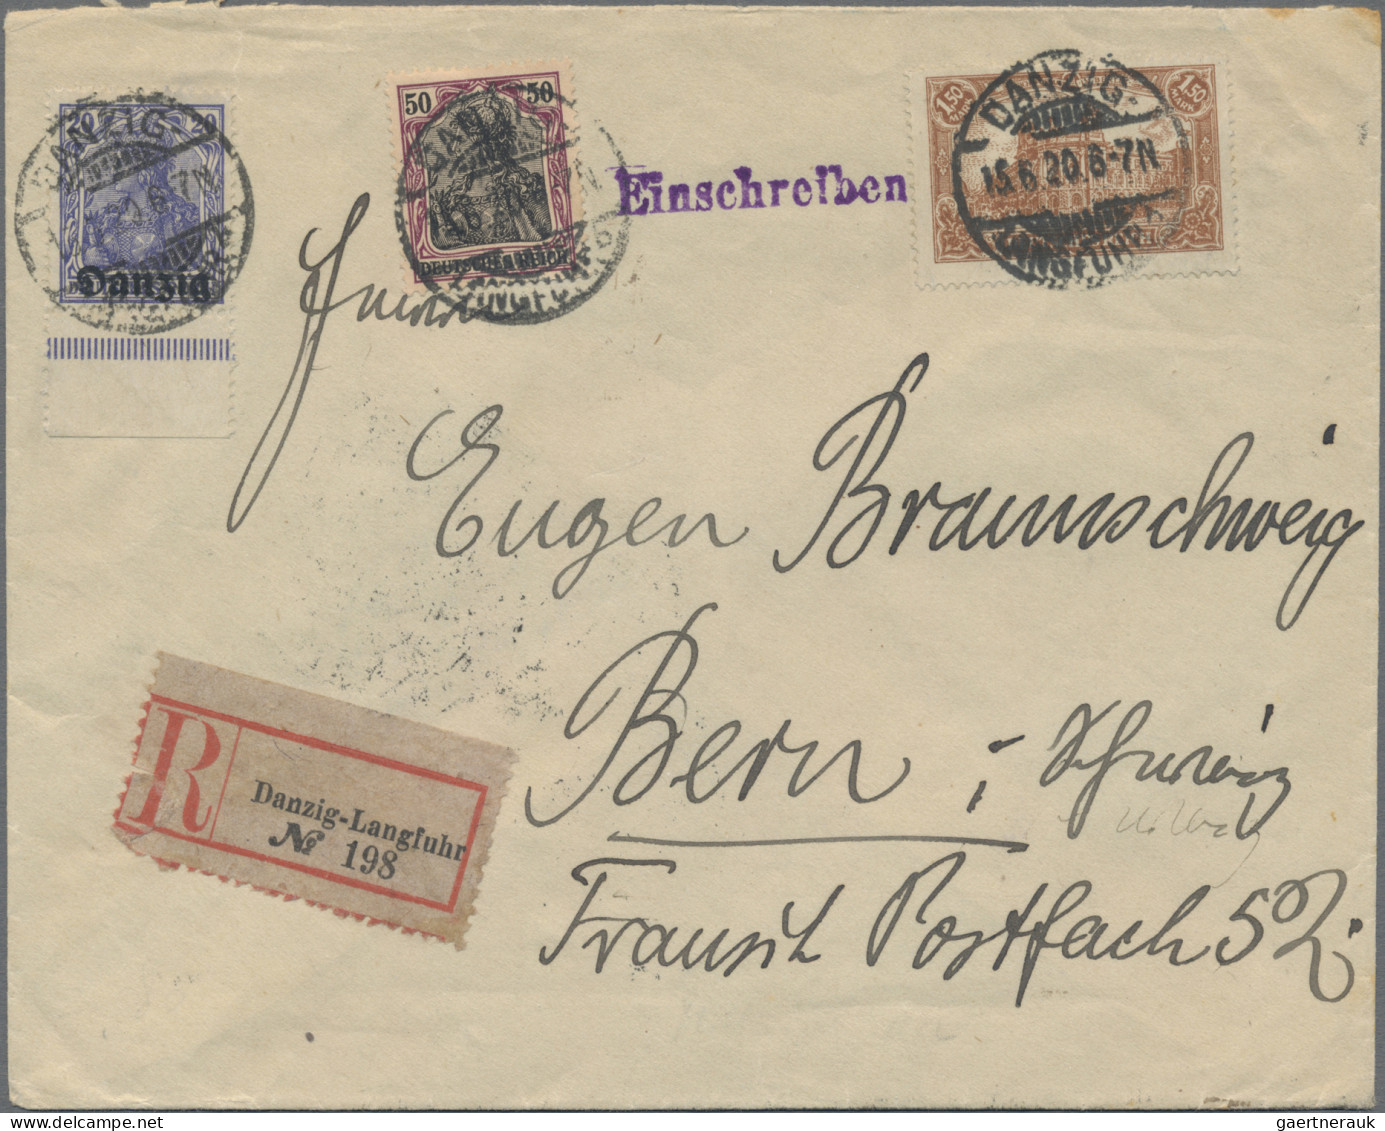 20 20
Danzig
DANZIG-
20.6-7N
50 50
DEUTSCHES REICH
Einschreiben
1,50 MARK 1,50 MARK
DANZIG-
15.6.20.6-7N
LANGFUHR
Herrn
Eugen Braunschweig
Bern : Schweiz
Transit Postfach 52
R
Danzig-Langfuhr
№ 198
gaertnerauk